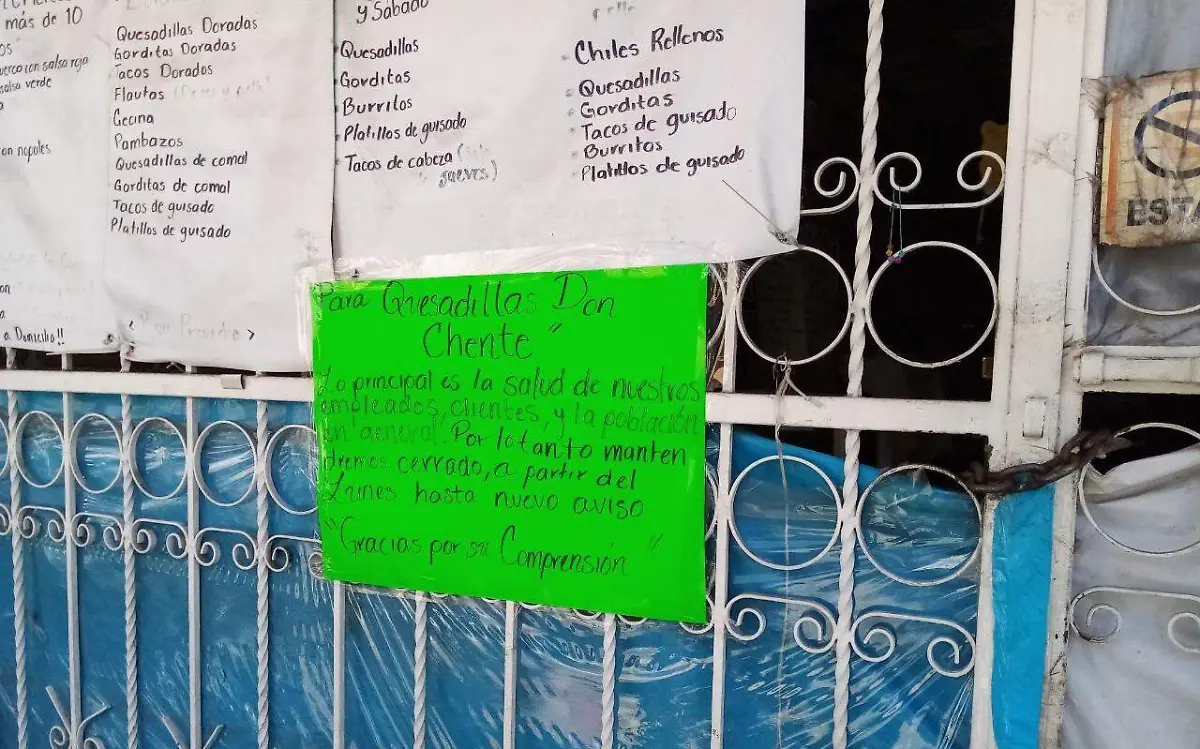 más de 10
salsa roja
salsa verde
nopales
a Domicilio!!
Quesadillas Doradas
Gorditas Doradas
Tacos Dorados
Flautas
Cecina
Pambazos
Quesadillas de comal
Gorditas de comal
Tacos de guisado
Platillos de guisado
y Sábado
Quesadillas
Gorditas
Burritos
Platillos de guisado
Tacos de cabeza (
jueves)
Chiles Rellenos
Quesadillas
Gorditas
Tacos de guisado
Burritos
Platillos de guisado
Para Quesadillas Don
Chente"
Lo principal es la salud de nuestros
empleados, clientes, y la población
en general. Por lo tanto manten
dremos cerrado, a partir del
Lunes hasta nuevo aviso
"Gracias por su Comprensión"
ESTA